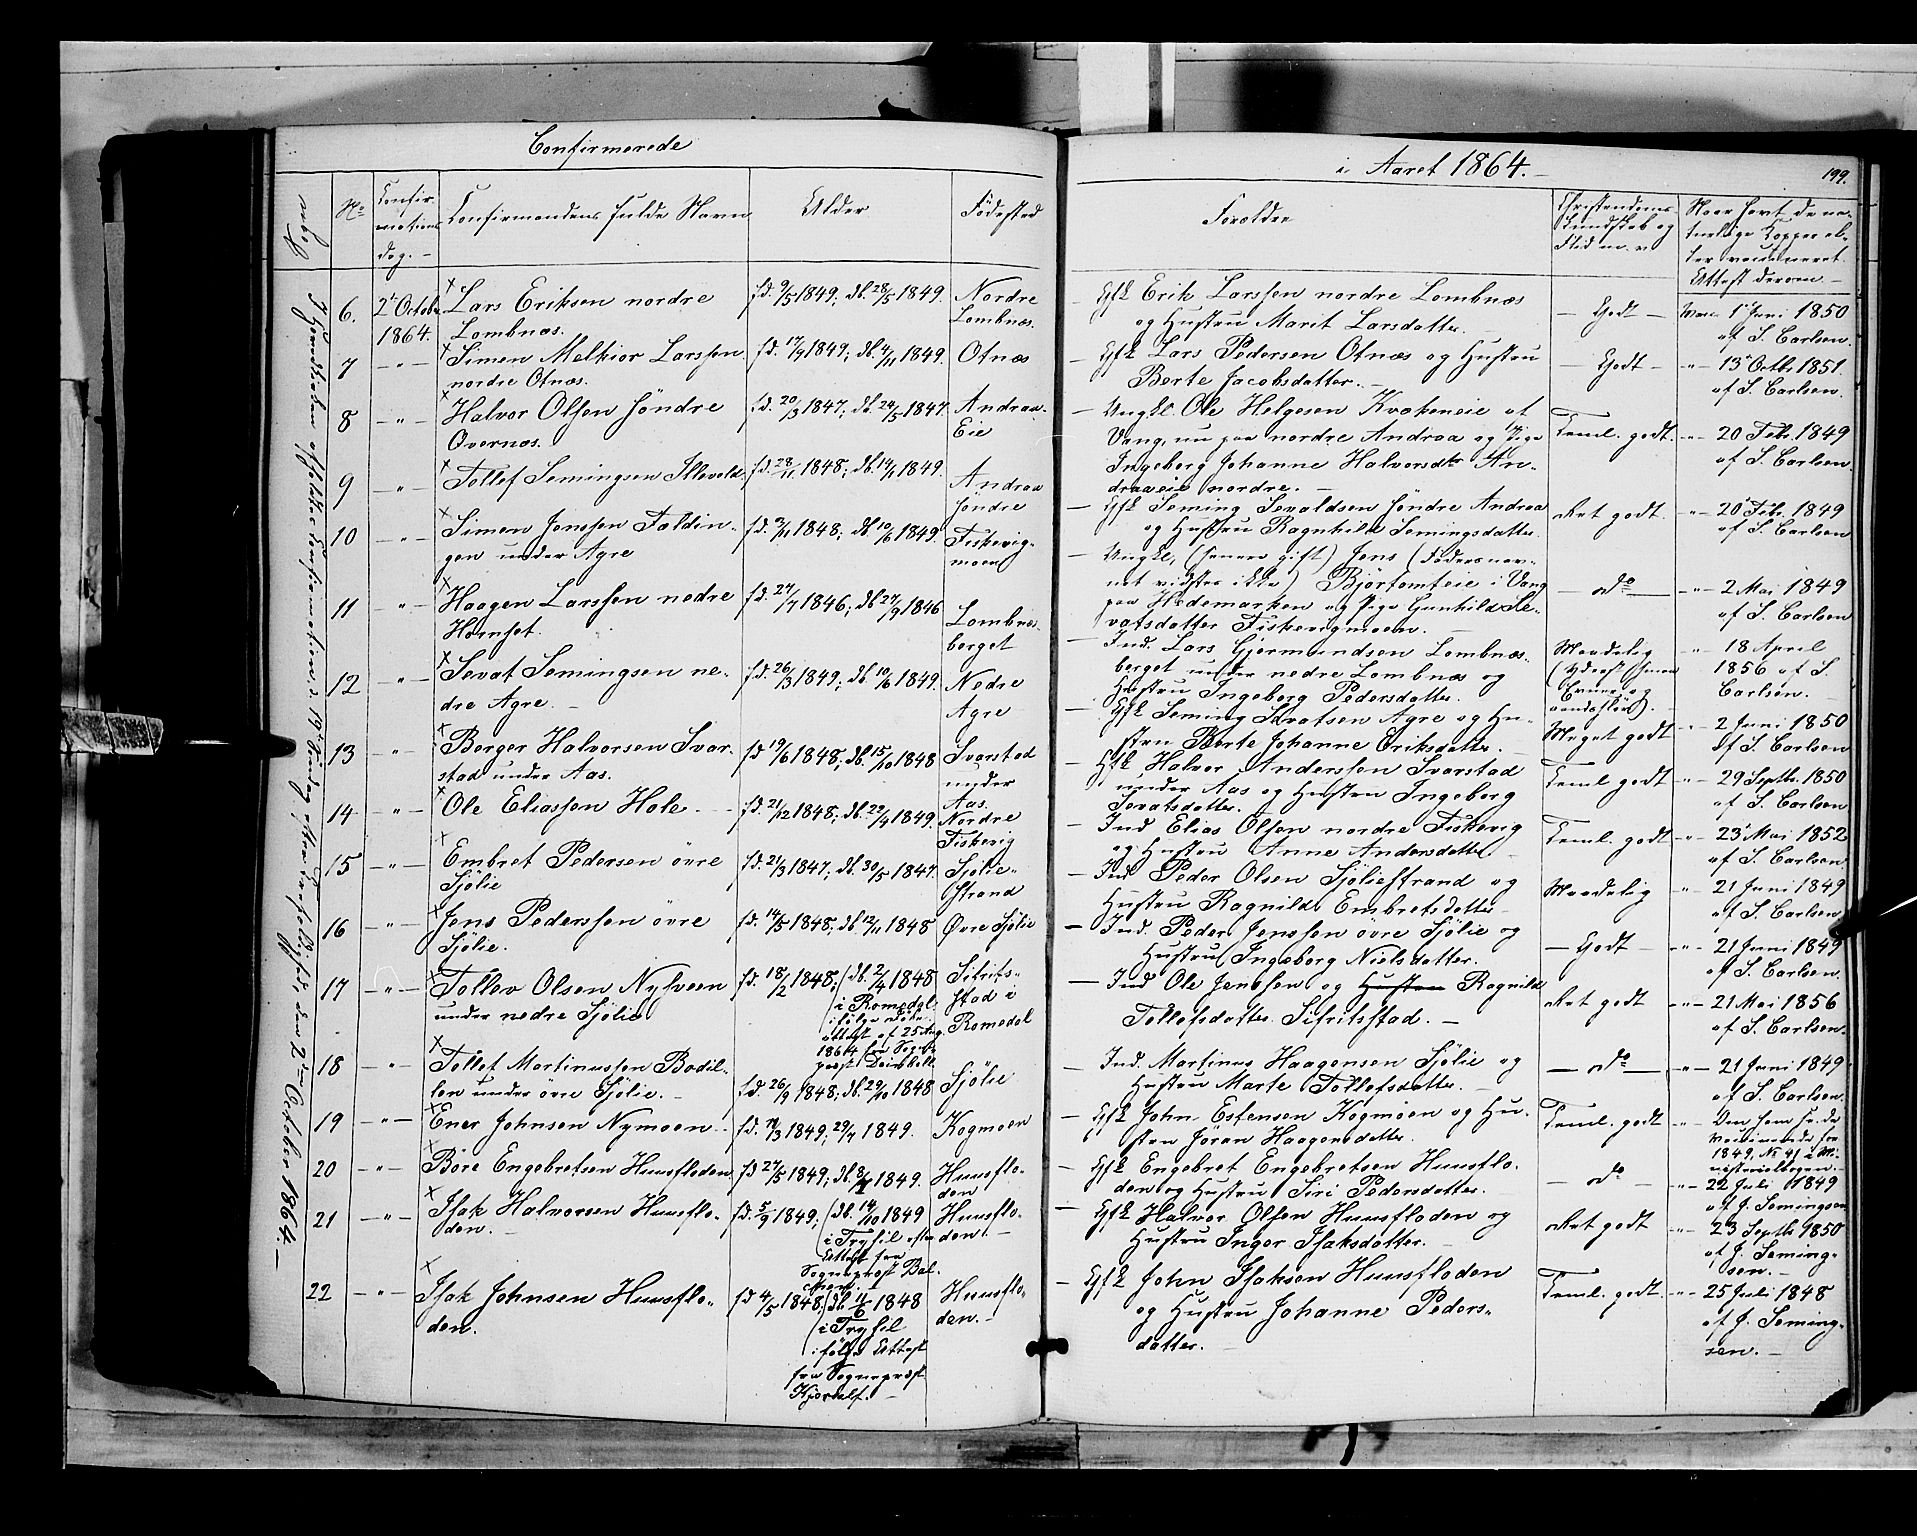 Confirmerede
i Aaret 1864.
199.
No
Confirmations dag.
Confirmandens fulde Navn
Alder
Fødested
Forældre
Christendoms Kundskab og Flid m. v.
Naar havt de naturlige Kopper eller vaccineret. Attest derom
6. 2den October 1864. Lars Eriksen nordre Lombnæs. fd. 9/5 1849; db. 28/5 1849. Nordre Lombnæs. Gfk Erik Larssen nordre Lombnæs og Hustru Marit Larsdatter. Godt Vacc. 1 Juni 1850 af S. Carlsen.
7 Simen Melkior Larssen nordre Otnæs. fd. 17/9 1849; db. 4/11 1849. Otnæs Gfk Lars Pedersen Otnæs og Hustru Berte Jacobsdatter. Godt 13 Octbr. 1851. af S. Carlsen.
8 Halvor Olsen søndre Overnæs. fd. 20/3 1847; db. 24/5 1847. Andraa-Eie Ungkl Ole Helgesen Kvækeneie af Vang, nu paa nordre Andraa og Pige Ingeborg Johanne Halvorsdtr Andraaeie nordre. Teml. godt. 20 Febr. 1849 af S. Carlsen.
9 Tollef Semingsen Illevold fd. 28/11 1848; db. 14/1 1849. Andraa søndre Gfk Seming Sevaldsen søndre Andraa og Hustru Ragnhild Semingsdatter. Ret godt 20 Febr. 1849 af S. Carlsen
10 Simen Jenssen Faldingen under Agre fd. 2/11 1848; db. 10/6 1849. Fiskevigmoen Ungkl, (senere gift) Jens (Fadersnavnet vidstes ikke) Bjørtomteie i Vang paa Hedemarken og Pige Gunhild Sevatsdatter Fiskevigmoen. do 2 Mai 1849 af S. Carlsen
11 Haagen Larssen nedre Hornset. fd. 27/7 1846; db 27/9 1846 Lombnæsberget Ind. Lars Gjermundsen Lombnæsberget under nedre Lombnæs og Hustru Ingeborg Pedersdatter. Maadelig 18 April 1856 af S. Carlsen.
12 Sevat Semingsen nedre Agre. fd. 26/3 1849; db 10/6 1849. Nedre Agre Gfk Seming Sevatsen Agre og Hustru Berte Johanne Eriksdatter. Meget godt 2 Juni 1850 af S. Carlsen
13 Berger Halvorsen Svarstad under Aas. fd 19/6 1848; db. 15/10 1848 Svarstad under Aas. Gfk Halvor Anderssen Svarstad under Aas og Hustru Ingeborg Sevatsdatter. Teml. godt 29 Septbr. 1850 af S. Carlsen
14 Ole Eliassen Hole fd. 21/12 1848; db. 29/4 1849. Nordre Fiskevig Ind Elias Olsen nordre Fiskevig og Hustru Anne Andersdatter Teml. godt 23 Mai 1852 af S. Carlsen.
15 Embret Pedersen øvre Sjølie fd. 21/3 1847; db. 30/5 1847. Sjølie-Strand Ind Peder Olsen Sjøliestrand og Hustru Ragnild Embretsdatter Maadelig 21 Juni 1849 af S. Carlsen
16 Jens Pederssen øvre Sjølie. fd. 14/5 1848; db. 12/11 1848 Øvre Sjølie Ind. Peder Jenssen øvre Sjølie og Hustru Ingeborg Nielsdatter. Godt 21 Juni 1849 af S. Carlsen.
17 Tollev Olsen Nylveen under nedre Sjølie fd. 18/2 1848; (db. 2/4 1848 i Romedal ifølge Døbeattest af 25 Aug. 1864 fra Sognepræst Sifritsstad i Romedal Ind Ole Jenssen og Hustru Ragnild Tollefsdatter Sifritsstad. Ret godt 21 Mai 1856 af S. Carlsen
18 Tollef Martinussen Bodillen under øvre Sjølie. fd. 26/9 1848; db. 29/10 1848 Sjølie Ind. Martinus Haagensen Sjølie og Hustru Marte Tollefsdatter. do 21 Juni 1849 af S. Carlsen.
19 Ener Johnsen Nymoen. fd. 19/3 1849; 29/7 1849. Kogmoen Gfk John Estensen Kogmoen og Hustru Jøran Haagensdatter. Teml. godt 1849, No 41 i Ministerialbogen.
20 Bore Engebretsen Huusfloden fd 27/5 1849; db. 8/7 1849. Huusfloden Gfk Engebret Engebretsen Huusfloden og Hustru Siri Pedersdatter. do 22 Juli 1849 af J. Semingsen
21 Isak Halvorsen Huusfloden. fd. 5/9 1849; (db. 14/10 1849 i Trysil efter Attest fra Sognepræst Huusfloden. Gfk Halvor Olsen Huusfloden og Hustru Inger Isaksdatter. Ret godt 23 Septbr 1850 af J. Semingsen.
22 Isak Johnsen Huusfloden. fd 4/5 1848. (db. 11/6 1848 i Trysil ifølge Attest fra Sognepræst Kjerulf. Huusfloden. Gfk John Isaksen Huusfloden og Hustru Johanne Pedersdatter. Teml. godt. 25 Juli 1848 af J. Semingsen.